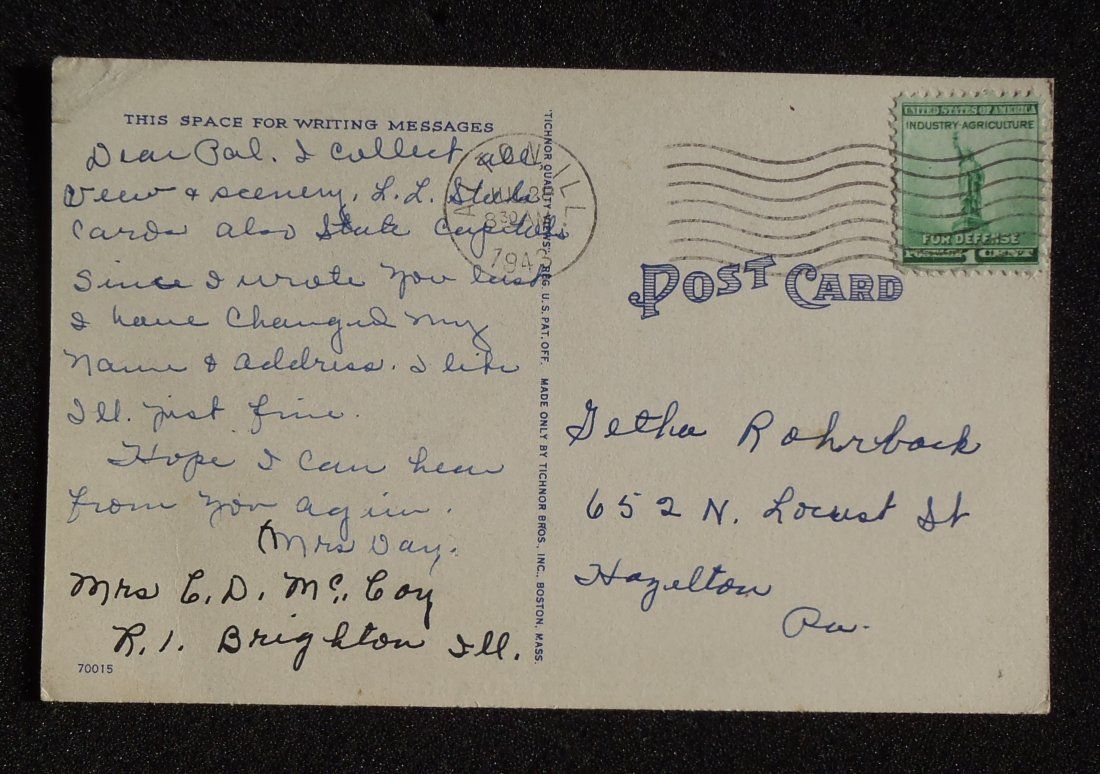 THIS SPACE FOR WRITING MESSAGES
Dear Pal. I collect all
View & scenery, L.L. State
Cards also State Capitols
Since I wrote you last
I have changed my
Name & address. I like
Ill. just fine.
Hope I can hear
from you agin.
(Mrs Day.
Mrs C.D. Mc. Coy
R.1. Brighton Ill.
70015
"TICHNOR QUALITY VIEWS" REG. U.S. PAT. OFF. MADE ONLY BY TICHNOR BROS., INC., BOSTON, MASS.
ILL.
830 AM
194
UNITED STATES OF AMERICA
INDUSTRY-AGRICULTURE
FOR DEFENSE
POSTAGE 1 CENT
POST CARD
Getha Rohrback
652 N. Locust St
Hazelton
Pa.